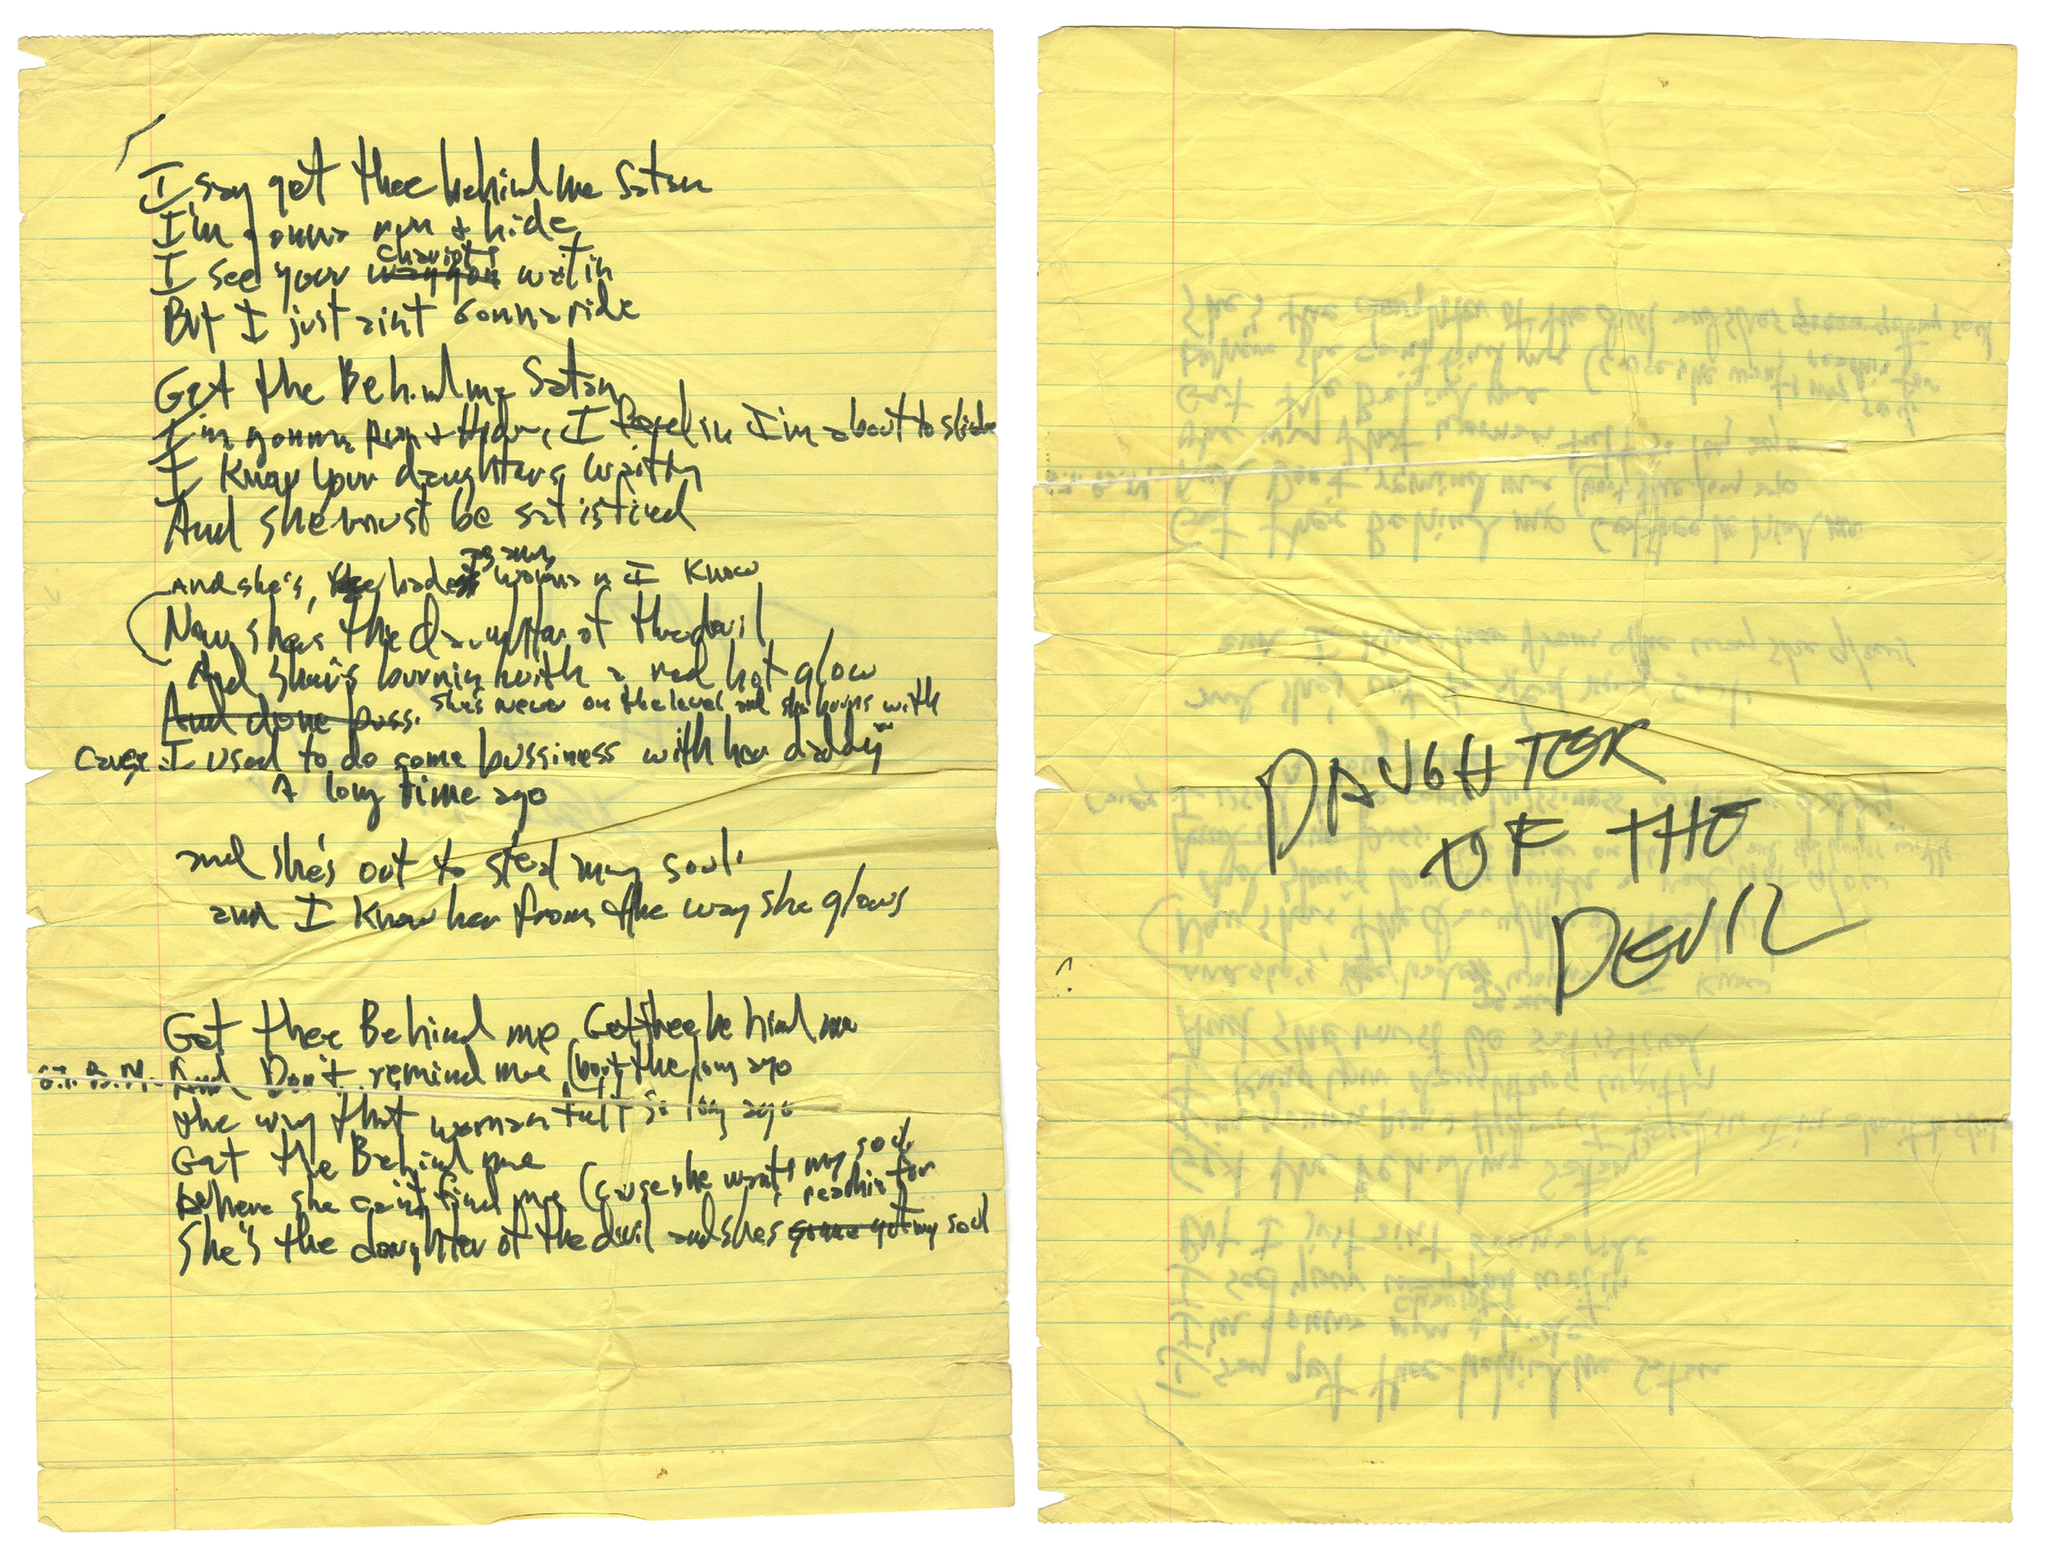 I say get thee behind me Satan
I'm gonna run + hide
chariots
I see your waggon waitin
But I just aint gonna ride
Get the Behind me Satan
I'm gonna Run + Hide, I feel in I'm about to slide
I know your daughters waitin
And she must be satisfied
And she's, the badest woman I know
Now she's the Daughter of the devil
And she's burnin with a red hot glow
And done pass. She's never on the level and she burns with
Cause I used to do some bussiness with her daddy
A long time ago
and she's out to steal my soul
and I know her from the way she glows
Get thee Behind me Get thee behind me
G.T.B.M. And Don't remind me (bout the long ago
the way that woman felt so long ago
Get the Behind me
Where she can't find me (cause she wants my soul
reachin for
She's the daughter of the devil and shes gonna get my soul
DAUGHTER
OF THE
DEVIL